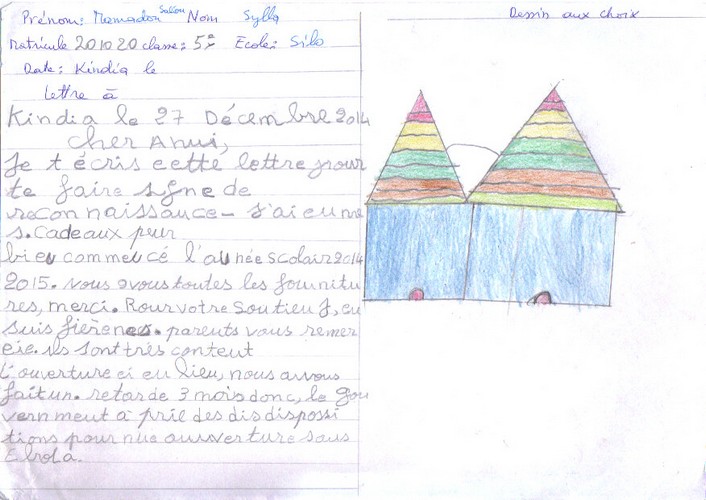 Prénom: Mamadou Saliou Nom Sylla
Matricule 201020 classe: 5e Ecole: Silo
Date: Kindia le
Lettre à
Kindia le 27 Décembre 2014
Cher Amui,
Je t écris cette lettre pour
te faire signe de
reconnaissance - J'ai eu me
s. Cadeaux pour
bien commencé l'année scolair 2014
2015. nous avous toutes les fournitu
res, merci. Pour votre soutien J, en
suis fière. parents vous remer
cie. ils sont très content
L'ouverture ci eu lieu, nous avous
fait un. retar de 3 mois donc, le gou
vernment à prie des dis dispossi
tions pour nue ouverture saus
Ebola.
Dessin aux choix